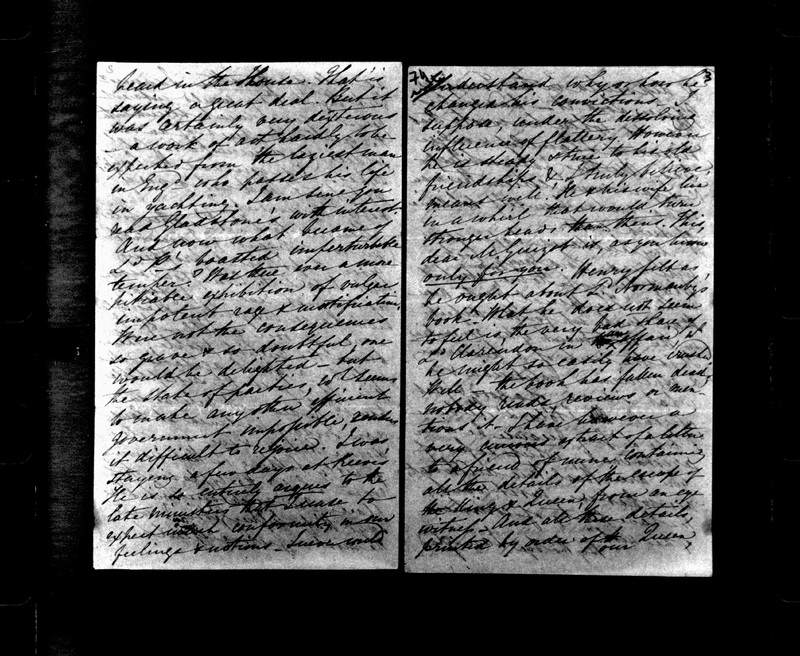 heard in the House. That is
saying a great deal. But it
was certainly very dexterous
- a work of art hardly to be
expected from the laziest man
in Eng^d who passes his life
in yachting. I am sure you
read Gladstone's with interest.
And now what became of
L^d P's boasted imperturbable
temper? Was there ever a more
pitiable exhibition of vulgar
impotent rage & mortification.
Were not the consequences
so grave & so doubtful, one
would be delighted - but
the state of parties, w^h seems
to make any other efficient
government impossible, renders
it difficult to rejoice. I was
staying a few days at Reeve's
He is so entirely averse to the
late ministers that I cease to
expect conformity in our
feelings & notions - I never could
understand why or how he
changed his convictions. I
suppose, under the dissolving
influence of flattery. However
he is steady & true to his old
friendships & I truly believe
means well. He & his wife live
in a whirl that would turn
stronger heads than theirs. This
dear M. Guizot is, as you know
only for you. Henry felt as
he ought about L^d Normanby's
book. What he does not seem
to feel is the very bad share
L^d Clarendon in the affair, w^h
he might so easily have crushed
Well - the book has fallen dead,
nobody reads, reviews or men-
tions it. I have however a
very curious extract of a letter
to a friend of mine containing
all the details of the escape of
the King & Queen, from an eye
witness. And all these details,
printed by order of our Queen,